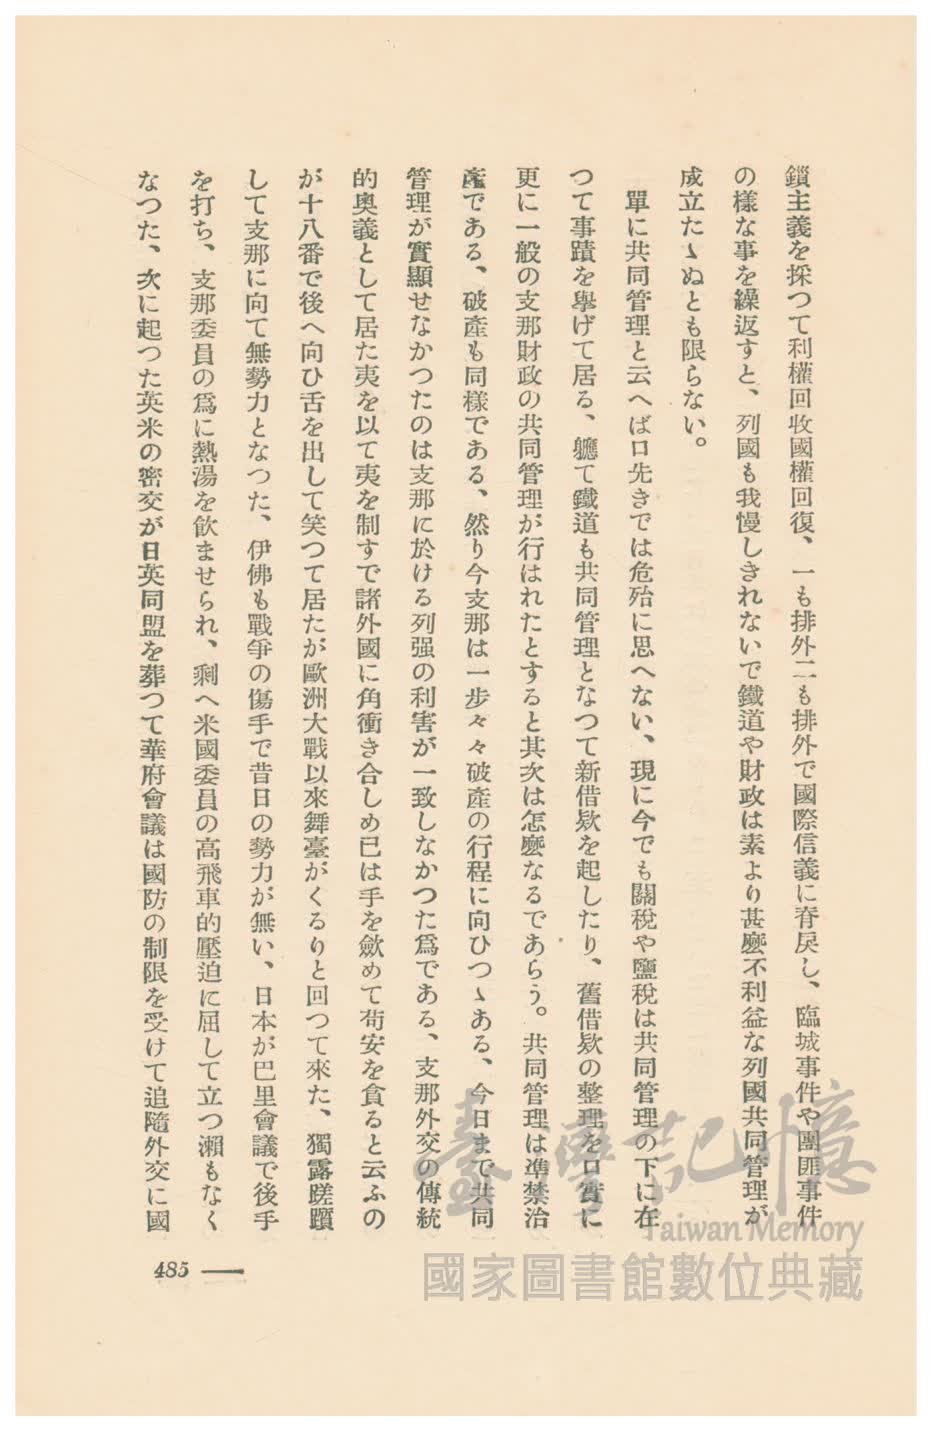 鎖主義を採つて利權回收國權回復、一も排外二も排外で國際信義に脊戾し、臨城事件や團匪事件
の樣な事を繰返すと、列國も我慢しきれないで鐵道や財政は素より甚麼不利益な列國共同管理が
成立たゝぬとも限らない。
單に共同管理と云へば口先きでは危殆に思へない、現に今でも關稅や鹽稅は共同管理の下に在
つて事蹟を擧げて居る、軈て鐵道も共同管理となつて新借欵を起したり、舊借欵の整理を口實に
更に一般の支那財政の共同管理が行はれたとすると其次は怎麼なるであらう。共同管理は準禁治
產である、破產も同樣である、然り今支那は一步々々破產の行程に向ひつゝある、今日まで共同
管理が實顯せなかつたのは支那に於ける列强の利害が一致しなかつた爲である、支那外交の傳統
的奧義として居た夷を以て夷を制すで諸外國に角衝き合しめ已は手を斂めて苟安を貪ると云ふの
が十八番で後へ向ひ舌を出して笑つて居たが歐洲大戰以來舞臺がくるりと回つて來た、獨露蹉躓
して支那に向て無勢力となつた、伊佛も戰爭の傷手で昔日の勢力が無い、日本が巴里會議で後手
を打ち、支那委員の爲に熱湯を飮ませられ、剩へ米國委員の高飛車的壓迫に屈して立つ瀨もなく
なつた、次に起つた英米の密交が日英同盟を葬つて華府會議は國防の制限を受けて追隨外交に國
485
臺灣記憶
Taiwan Memory
國家圖書館數位典藏